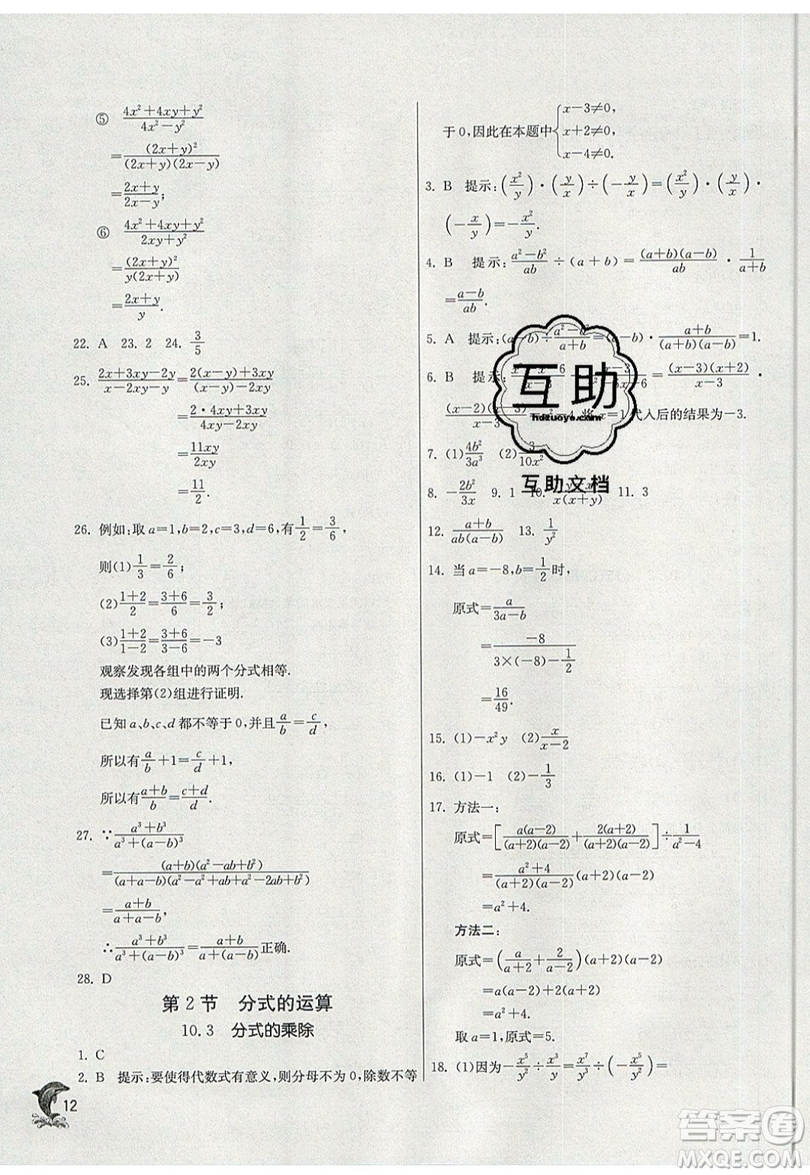 ⑤ (4x²+4xy+y²)/(4x²−y²)
=(2x+y)²/((2x+y)(2x−y))
=(2x+y)/(2x−y);
⑥ (4x²+4xy+y²)/(2xy+y²)
=(2x+y)²/(y(2x+y))
=(2x+y)/y.
22. A 23. 2 24. 3/5
25. (2x+3xy−2y)/(x−2xy−y)=(2(x−y)+3xy)/((x−y)−2xy)
=(2·4xy+3xy)/(4xy−2xy)
=11xy/2xy
=11/2.
26. 例如:取a=1,b=2,c=3,d=6,有1/2=3/6
则(1)1/3=2/6;
(2)(1+2)/2=(3+6)/6;
(3)(1+2)/(1−2)=(3+6)/(3−6)=−3
观察发现各组中的两个分式相等.
现选择第(2)组进行证明.
已知a、b、c、d都不等于0,并且a/b=c/d,
所以有a/b+1=c/d+1,
所以有(a+b)/b=(c+d)/d.
27. ∵(a³+b³)/(a³+(a−b)³)
=((a+b)(a²−ab+b²))/((a+a−b)(a²−a²+ab+a²−2ab+b²))
=(a+b)/(a+a−b).
∴(a³+b³)/(a³+(a−b)³)=(a+b)/(a+(a−b))正确.
28. D
第2节 分式的运算
10.3 分式的乘除
1. C
2. B 提示:要使得代数式有意义,则分母不为0,除数不等
12
于0,因此在本题中{x−3≠0,
x+2≠0,
x−4≠0.
3. B 提示:(x²/y)·(y/x)÷(−y/x)=(x²/y)·(y/x)·
(−x/y)=−x²/y.
4. B 提示:(a²−b²)/ab÷(a+b)=((a+b)(a−b))/ab·1/(a+b)
=(a−b)/ab.
5. A 提示:(a−b)÷(a²−b²)/(a+b)=(a−b)·(a+b)/((a+b)(a−b))=1.
6. B 提示: =((x−3)(x+2))/(x−3)·
(x−2) 4,将x=1代入后的结果为−3.
7. (1)4b²/3a³ (2) /10x²
8. −2b²/3x 9. 1 10. /(x(x+y)) 11. 3
12. (a+b)/(ab(a−b)) 13. 1/y²
14. 当a=−8,b=1/2时,
原式=a/(3a−b)
=−8/(3×(−8)−1/2)
=16/49.
15. (1)−x²y (2)x/(x−2)
16. (1)−1 (2)−1/3
17. 方法一:
原式=[a(a−2)/((a+2)(a−2))+2(a+2)/((a+2)(a−2))]÷1/(a²−4)
=(a²+4)/((a+2)(a−2))(a+2)(a−2)
=a²+4.
方法二:
原式=(a/(a+2)+2/(a−2))(a+2)(a−2)
=a(a−2)+2(a+2)
=a²+4.
取a=1,原式=5.
18. (1)因为−x⁵/y²÷x³/y=x⁷/y³÷(−x⁵/y²)=
互助
hdzuoye.com
互助文档
答案圈
MXQE.COM